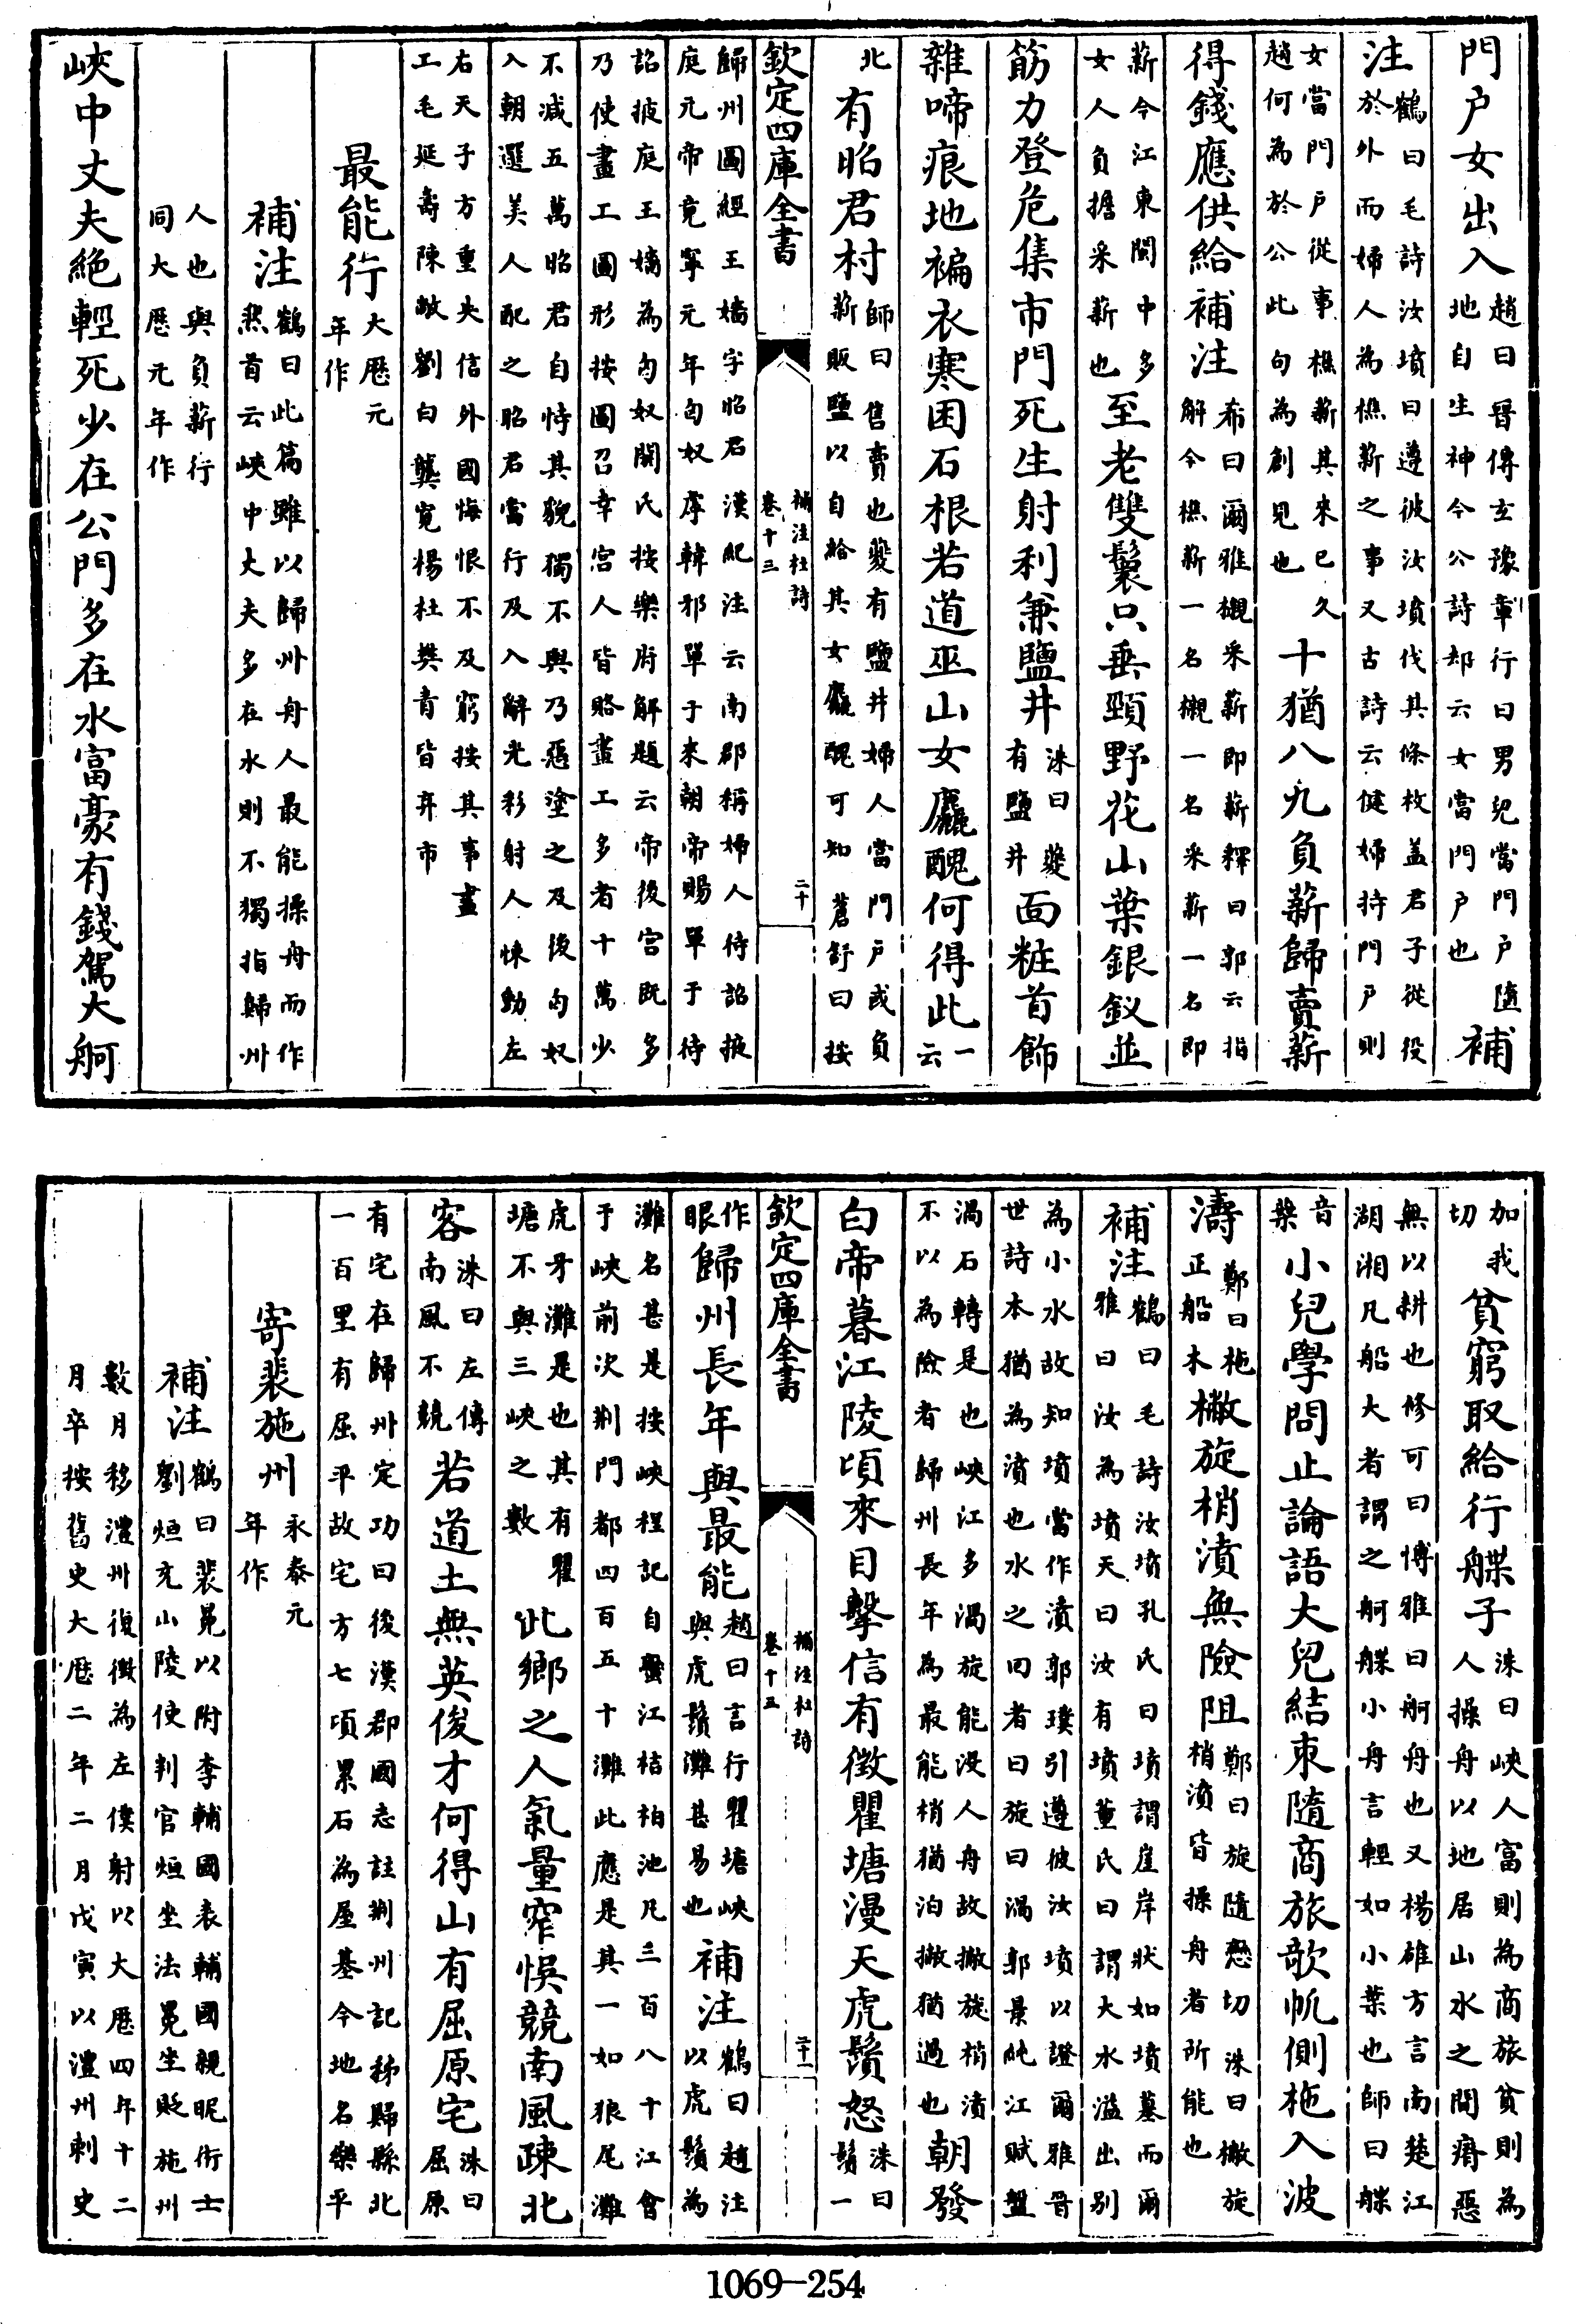 門户女出入趙曰晉傳玄豫章行曰男兒當門户隨地自生神今公詩却云女當門户也補
注鶴曰毛詩汝墳曰遵彼汝墳伐其條枚盖君子從役於外而婦人為樵薪之事又古詩云健婦持門户則
女當門户從事樵薪其來已久趙何為於公此句為創見也十猶八九負薪歸賣薪
得錢應供給補注希曰爾雅櫬采薪即薪釋曰郭云指解今樵薪一名櫬一名采薪一名即
薪今江東閩中多女人負擔采薪也至老雙鬟只垂頸野花山葉銀釵並
筋力登危集市門死生射利兼鹽井洙曰夔有鹽井面粧首飾
雜啼痕地褊衣寒困石根若道巫山女麤醜何得此一云
北有昭君村師曰售賣也夔有鹽井婦人當門户或負薪販鹽以自給其女麤醜可知蒼舒曰按
欽定四庫全書 補注杜詩 卷十三 二十
歸州圖經王嬙字昭君漢紀注云南郡稱婦人待詔掖庭元帝竟寧元年匈奴虖韓邪單于來朝帝賜單于待
詔掖庭王嬙為匈奴閼氏按樂府解題云帝後宫既多乃使畫工圖形按圖召幸宫人皆賂畫工多者十萬少
不减五萬昭君自恃其貌獨不與乃惡塗之及後匈奴入朝選美人配之昭君當行及入辭光彩射人悚動左
右天子方重失信外國悔恨不及窮按其事畫工毛延壽陳敞劉白龔寛楊杜樊青皆弃市
最能行大厯元年作
補注鶴曰此篇雖以歸州舟人最能操舟而作然首云峽中大夫多在水則不獨指歸州
人也與負薪行同大厯元年作
峽中丈夫絶輕死少在公門多在水富豪有錢駕大舸
加我切貧窮取給行艓子洙曰峽人富則為商旅貧則為人操舟以地居山水之間瘠惡
無以耕也修可曰博雅曰舸舟也又楊雄方言南楚江湖湘凡船大者謂之舸艓小舟言輕如小葉也師曰艓
音葉小兒學問止論語大兒結束隨商旅欹帆側柂入波
濤鄭曰柂正船木撇旋梢濆無險阻鄭曰旋隨戀切洙曰撇旋梢濆皆操舟者所能也
補注鶴曰毛詩汝墳孔氏曰墳謂崖岸狀如墳墓而爾雅曰汝為墳天曰汝有墳董氏曰謂大水溢出别
為小水故知墳當作濆郭璞引遵彼汝墳以證爾雅晉世詩本猶為濆也水之回者曰旋曰渦郭景純江賦盤
渦石轉是也峽江多渦旋能没人舟故撇旋梢濆不以為險者歸州長年為最能梢猶泊撇猶過也朝發
白帝暮江陵頃來目擊信有徵瞿塘漫天虎鬚怒洙曰鬚一
欽定四庫全書 補注杜詩 卷十五 二十一
作眼歸州長年與最能趙曰言行瞿塘峽與虎鬚灘甚易也補注鶴曰趙注以虎鬚為
灘名甚是按峽程記自蠻江桔柏池凡三百八十江會于峽前次荆門都四百五十灘此應是其一如狼尾灘
虎牙灘是也其有瞿塘不與三峽之數此鄉之人氣量窄悞競南風疎北
客洙曰左傳南風不競若道土無英俊才何得山有屈原宅洙曰屈原
有宅在歸州定功曰後漢郡國志註荆州記秭歸縣北一百里有屈平故宅方七頃累石為屋基今地名樂平
寄裴施州永泰元年作
補注鶴曰裴冕以附李輔國表輔國親昵術士劉烜充山陵使判官烜坐法冕坐貶施州
數月移澧州復徴為左僕射以大厯四年十二月卒按舊史大厯二年二月戊寅以澧州刺史
1069-254